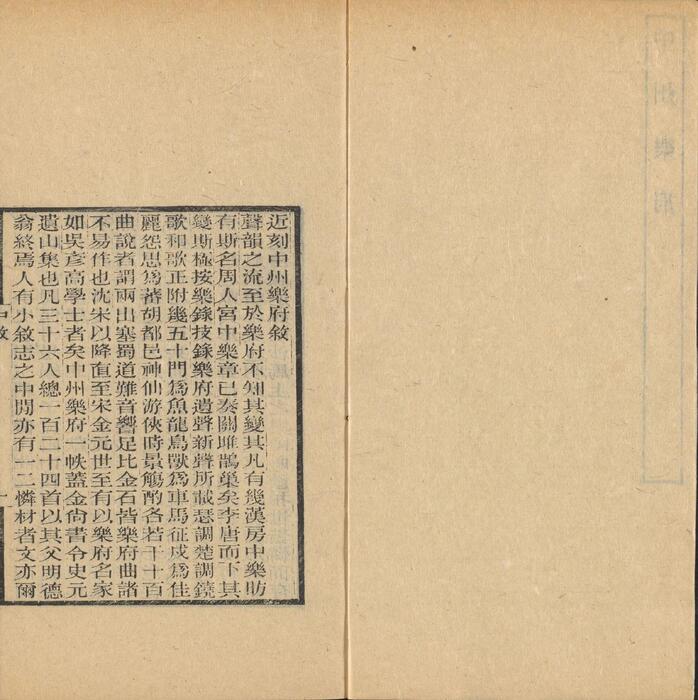 近刻中州樂府敘
聲韻之流至於樂府不知其變其凡有幾漢房中樂昉
有斯名周人宮中樂章已泰關雎鵲巢矣李唐而下其
變斯極按樂錄技錄樂府遺聲新聲所載瑟調楚調鐃
歌和歌正附幾五十門為魚龍鳥獸為車馬征戍為佳
麗怨思為蕃胡都邑神仙游俠時景觴酌各若干十百
曲說者謂兩出塞蜀道難音響足比金石皆樂府曲諸
不易作也沈宋以降直至宋金元世至有以樂府名家
如吳彥高學士者矣中州樂府一帙蓋金尚書令史元
遺山集也凡三十六人總一百二十四首以其父明德
翁終焉人有小敘志之中閒亦有一二憐材者文亦爾
中敘
一
中州樂府